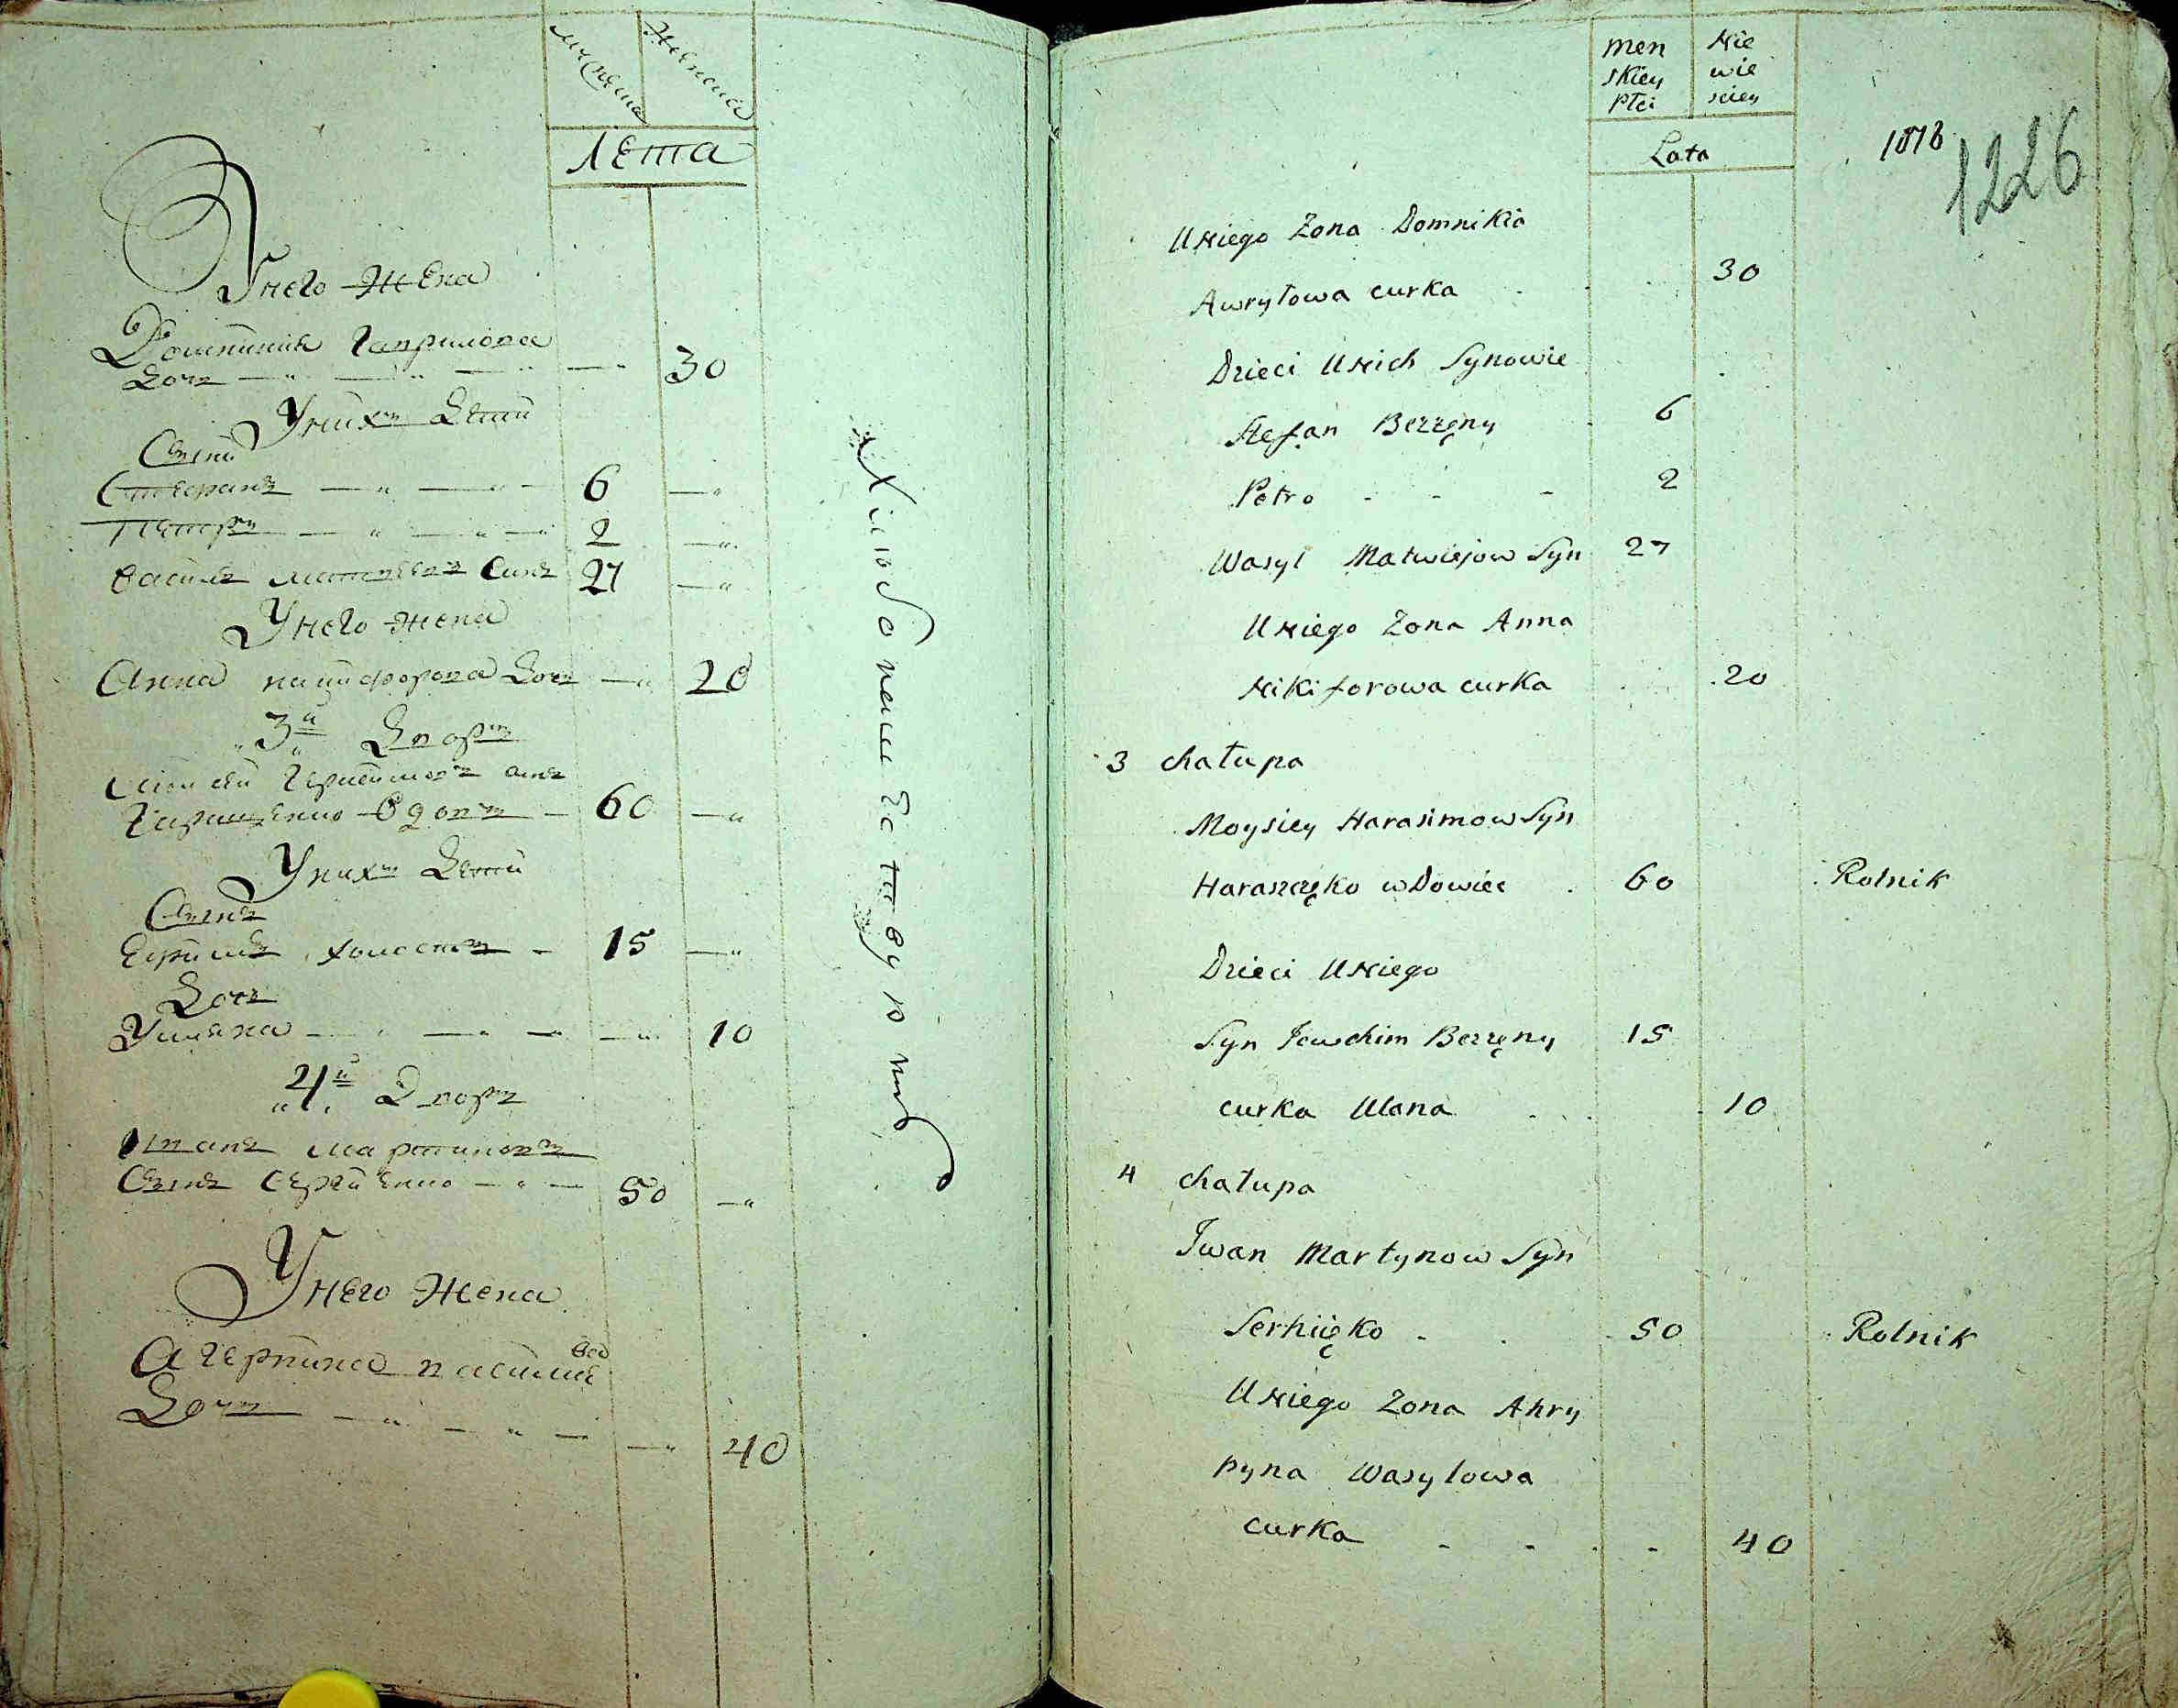 Мужеска Женска
Лета
У него Жена
Домникия Гаврилова
Дочь 30
У них Дети
Сыни
Стефанъ 6
Петръ 2
Василь Матвеевъ Синъ 27
У него жена
Анна никифорова Дочь 20
3й Дворъ
Мойсей Герасимовъ синъ
Гаращенко Вдовъ 60
У них Дети
Синъ
Ефимъ холостъ 15
Дочь
Уляна 10
4й Дворъ
Иванъ Мартиновъ
Синъ Сергиенко 50
У него Жена
Агерпина василиева
Дочь 40
Men Nie
skiey wie
Płci sciey
Lata
1818
1226
U Niego Zona Domnikia
Awryłowa curka 30
Dzieci U Nich Synowie
Stefan Bezzęny 6
Petro 2
Wasyl Matwiejow Syn 27
U Niego Zona Anna
Nikiforowa curka 20
3 chałupa
Moysiey Harasimow Syn
Haraszczęko wDowiec 60 Rolnik
Dzieci U Niego
Syn Jewchim Bezzęny 15
curka Ulana 10
4 chałupa
Iwan Martynow Syn
Serhiięko 50 Rolnik
U Niego Zona Ahry
pyna Wasylowa
curka 40